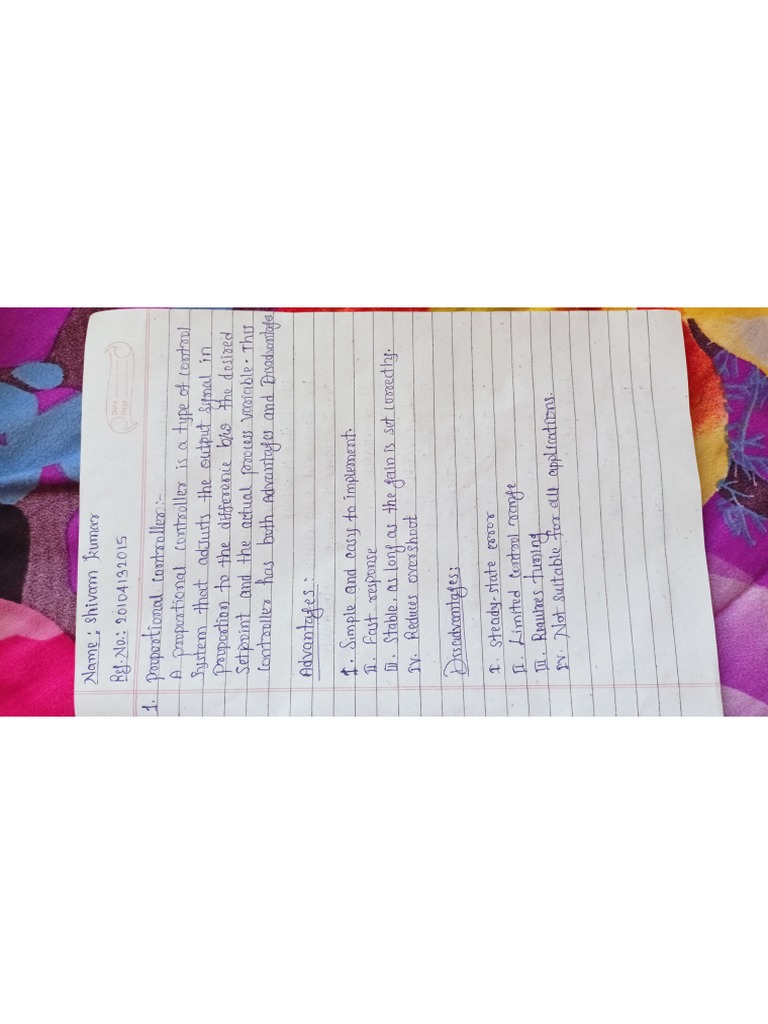 Name: Shivam Kumar
Ref. No.: 20104132015
1. Proportional controller:-
A proportional controller is a type of control
System that adjusts the output signal in
Proportion to the difference b/w the desired
Setpoint and the actual process variable. This
Controller has both advantages and Disadvantages
Advantages:-
I. Simple and easy to implement.
II. Fast response
III. Stable, as long as the gain is set correctly.
IV. Reduces overshoot
Disadvantages:
I. Steady-state error
II. Limited control range
III. Requires tuning
IV. Not suitable for all applications.